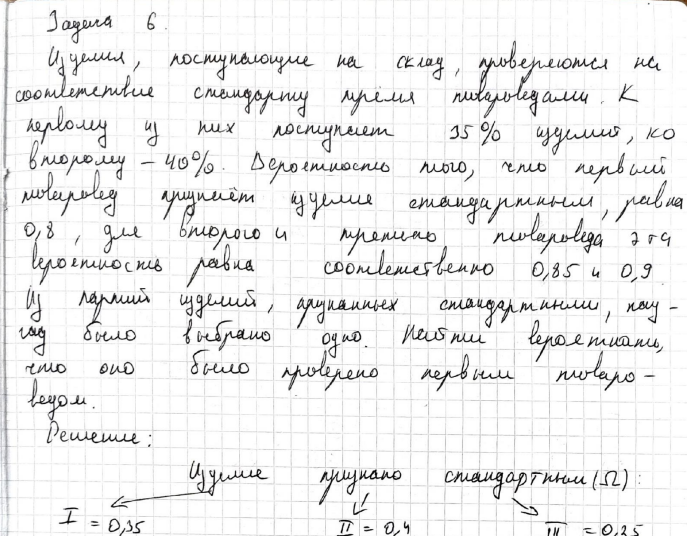 Задача 6.
Изделия, поступающие на склад, проверяются на
соответствие стандарту тремя товароведами. К
первому из них поступает 35% изделий, ко
второму – 40%. Вероятность того, что первый
товаровед признаёт изделие стандартным, равна
0,8, для второго и третьего товароведа эта
вероятность равна соответственно 0,85 и 0,9.
Из партий изделий, признанных стандартными, нау-
гад было выбрано одно. Найти вероятность,
что оно было проверено первым товаро-
ведом.
Решение:
Изделие признано стандартным (Ω):
I = 0,35 II = 0,4 III = 0,25